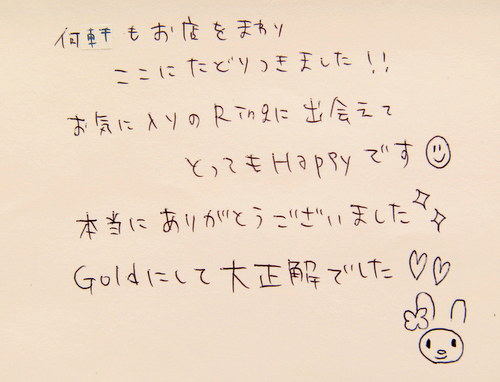 何軒もお店をまわり
ここにたどりつきました!!
お気に入りのRingに出会えて
とってもHappyです
本当にありがとうございました
Goldにして大正解でした